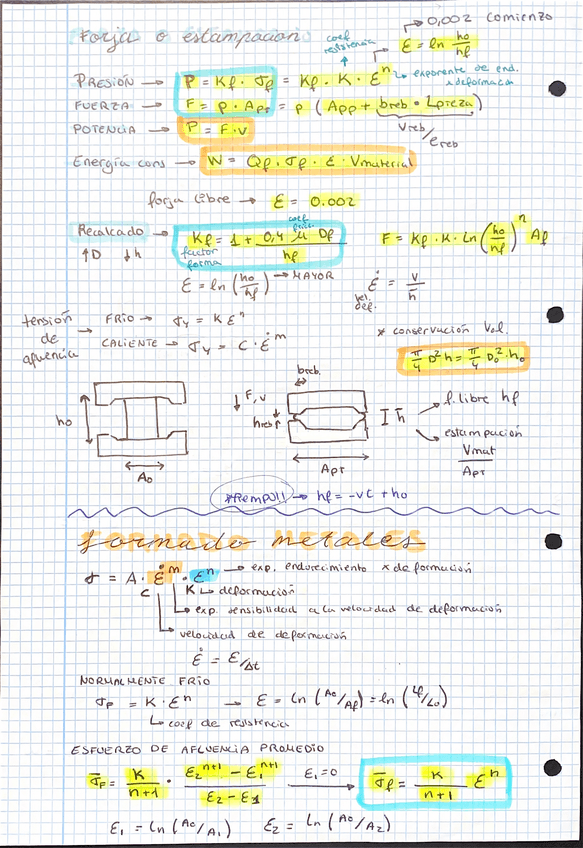 Forja o estampación
→ 0,002 comienzo
coef resistencia
ε = ln ho/hf
PRESIÓN → P = Kf · σf = Kf · K · ε^n → exponente de end. x deformación
FUERZA → F = p · Apr = p (App + breb · Lpieza)
Vreb/ereb
POTENCIA → P = F·v
Energía cons → W = Qf · σf · ε · Vmaterial
forja libre → ε = 0.002
Recalcado → Kf = 1 + 0,4 μ Df / hf
coef fricc
factor forma
↑D ↓h
F = Kf · K · Ln (ho/hf)^n Af
ε = ln (ho/hf) → MAYOR
vel. def. ε̇ = v/h
tensión de afluencia → FRÍO → σy = K ε^n
CALIENTE → σy = C · ε̇^m
* conservación Vol.
π/4 D² h = π/4 Do² · ho
ho
Ao
↓F, v
breb.
hreb
Apr
I h̄
f. libre hf
estampación Vmat/Apr
→ hf = -vt + ho
Formado metales
σ = A · ε̇^m · ε^n → exp. endurecimiento x deformación
C
K ↳ deformación
exp. sensibilidad a la velocidad de deformación
velocidad de deformación
ε̇ = ε/Δt
NORMALMENTE FRÍO
σF = K · ε^n → ε = Ln (Ao/Af) = ln (Lf/Lo)
↳ coef de resistencia
ESFUERZO DE AFLUENCIA PROMEDIO
σ̄F = K/n+1 · ε2^n+1 - ε1^n+1 / ε2 - ε1 ε1=0 → σ̄f = K/n+1 ε^n
ε1 = Ln (Ao/A1) ε2 = Ln (Ao/A2)